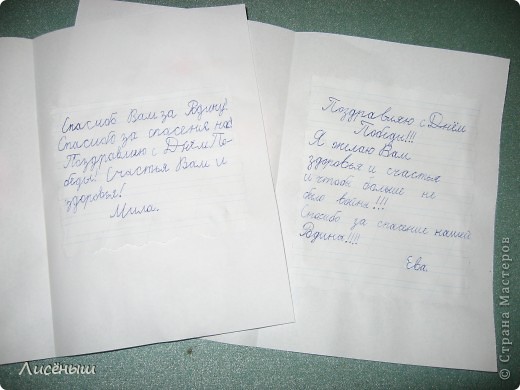 Спасиоб Вам за Родину!
Спасибо за спасения нас!
Поздравляю с Днём По-
беды! Счастья Вам и
здоровья!
Мила.
Поздравляю с Днём
Победы!!!
Я желаю Вам
здоровья и счастья
и чтоб больше не
было войны!!!
Спасибо за спасение нашей
Родины!!!!
Ева
Лисёныш
© Страна Мастеров